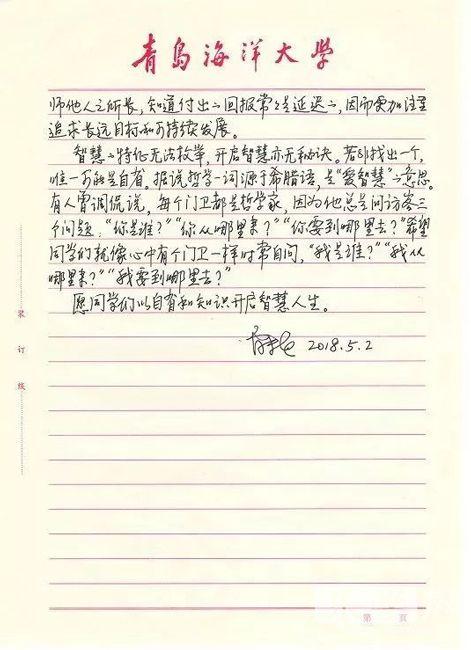 青岛海洋大学
师他人之所长，知道付出的回报常常是延迟的，因而更加注重
追求长远目标和可持续发展。
智慧的特征无法枚举，开启智慧亦无秘诀。若别找出一个，
唯一可能是自省。据说哲学一词源于希腊语，是“爱智慧”的意思。
有人曾调侃说，每个门卫都是哲学家，因为他总是问访客三
个问题：“你是谁？”“你从哪里来？”“你要到哪里去？”希望
同学们就像心中有个门卫一样时常自问，“我是谁？”“我从
哪里来？”“我要到哪里去？”
愿同学们以自省和知识开启智慧人生。
2018.5.2
装订线
第 页